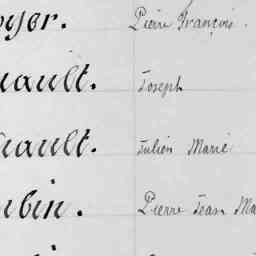 oyer. Pierre François.
uault. Joseph
uault. Julien Marie
ubin. Pierre Jean Ma